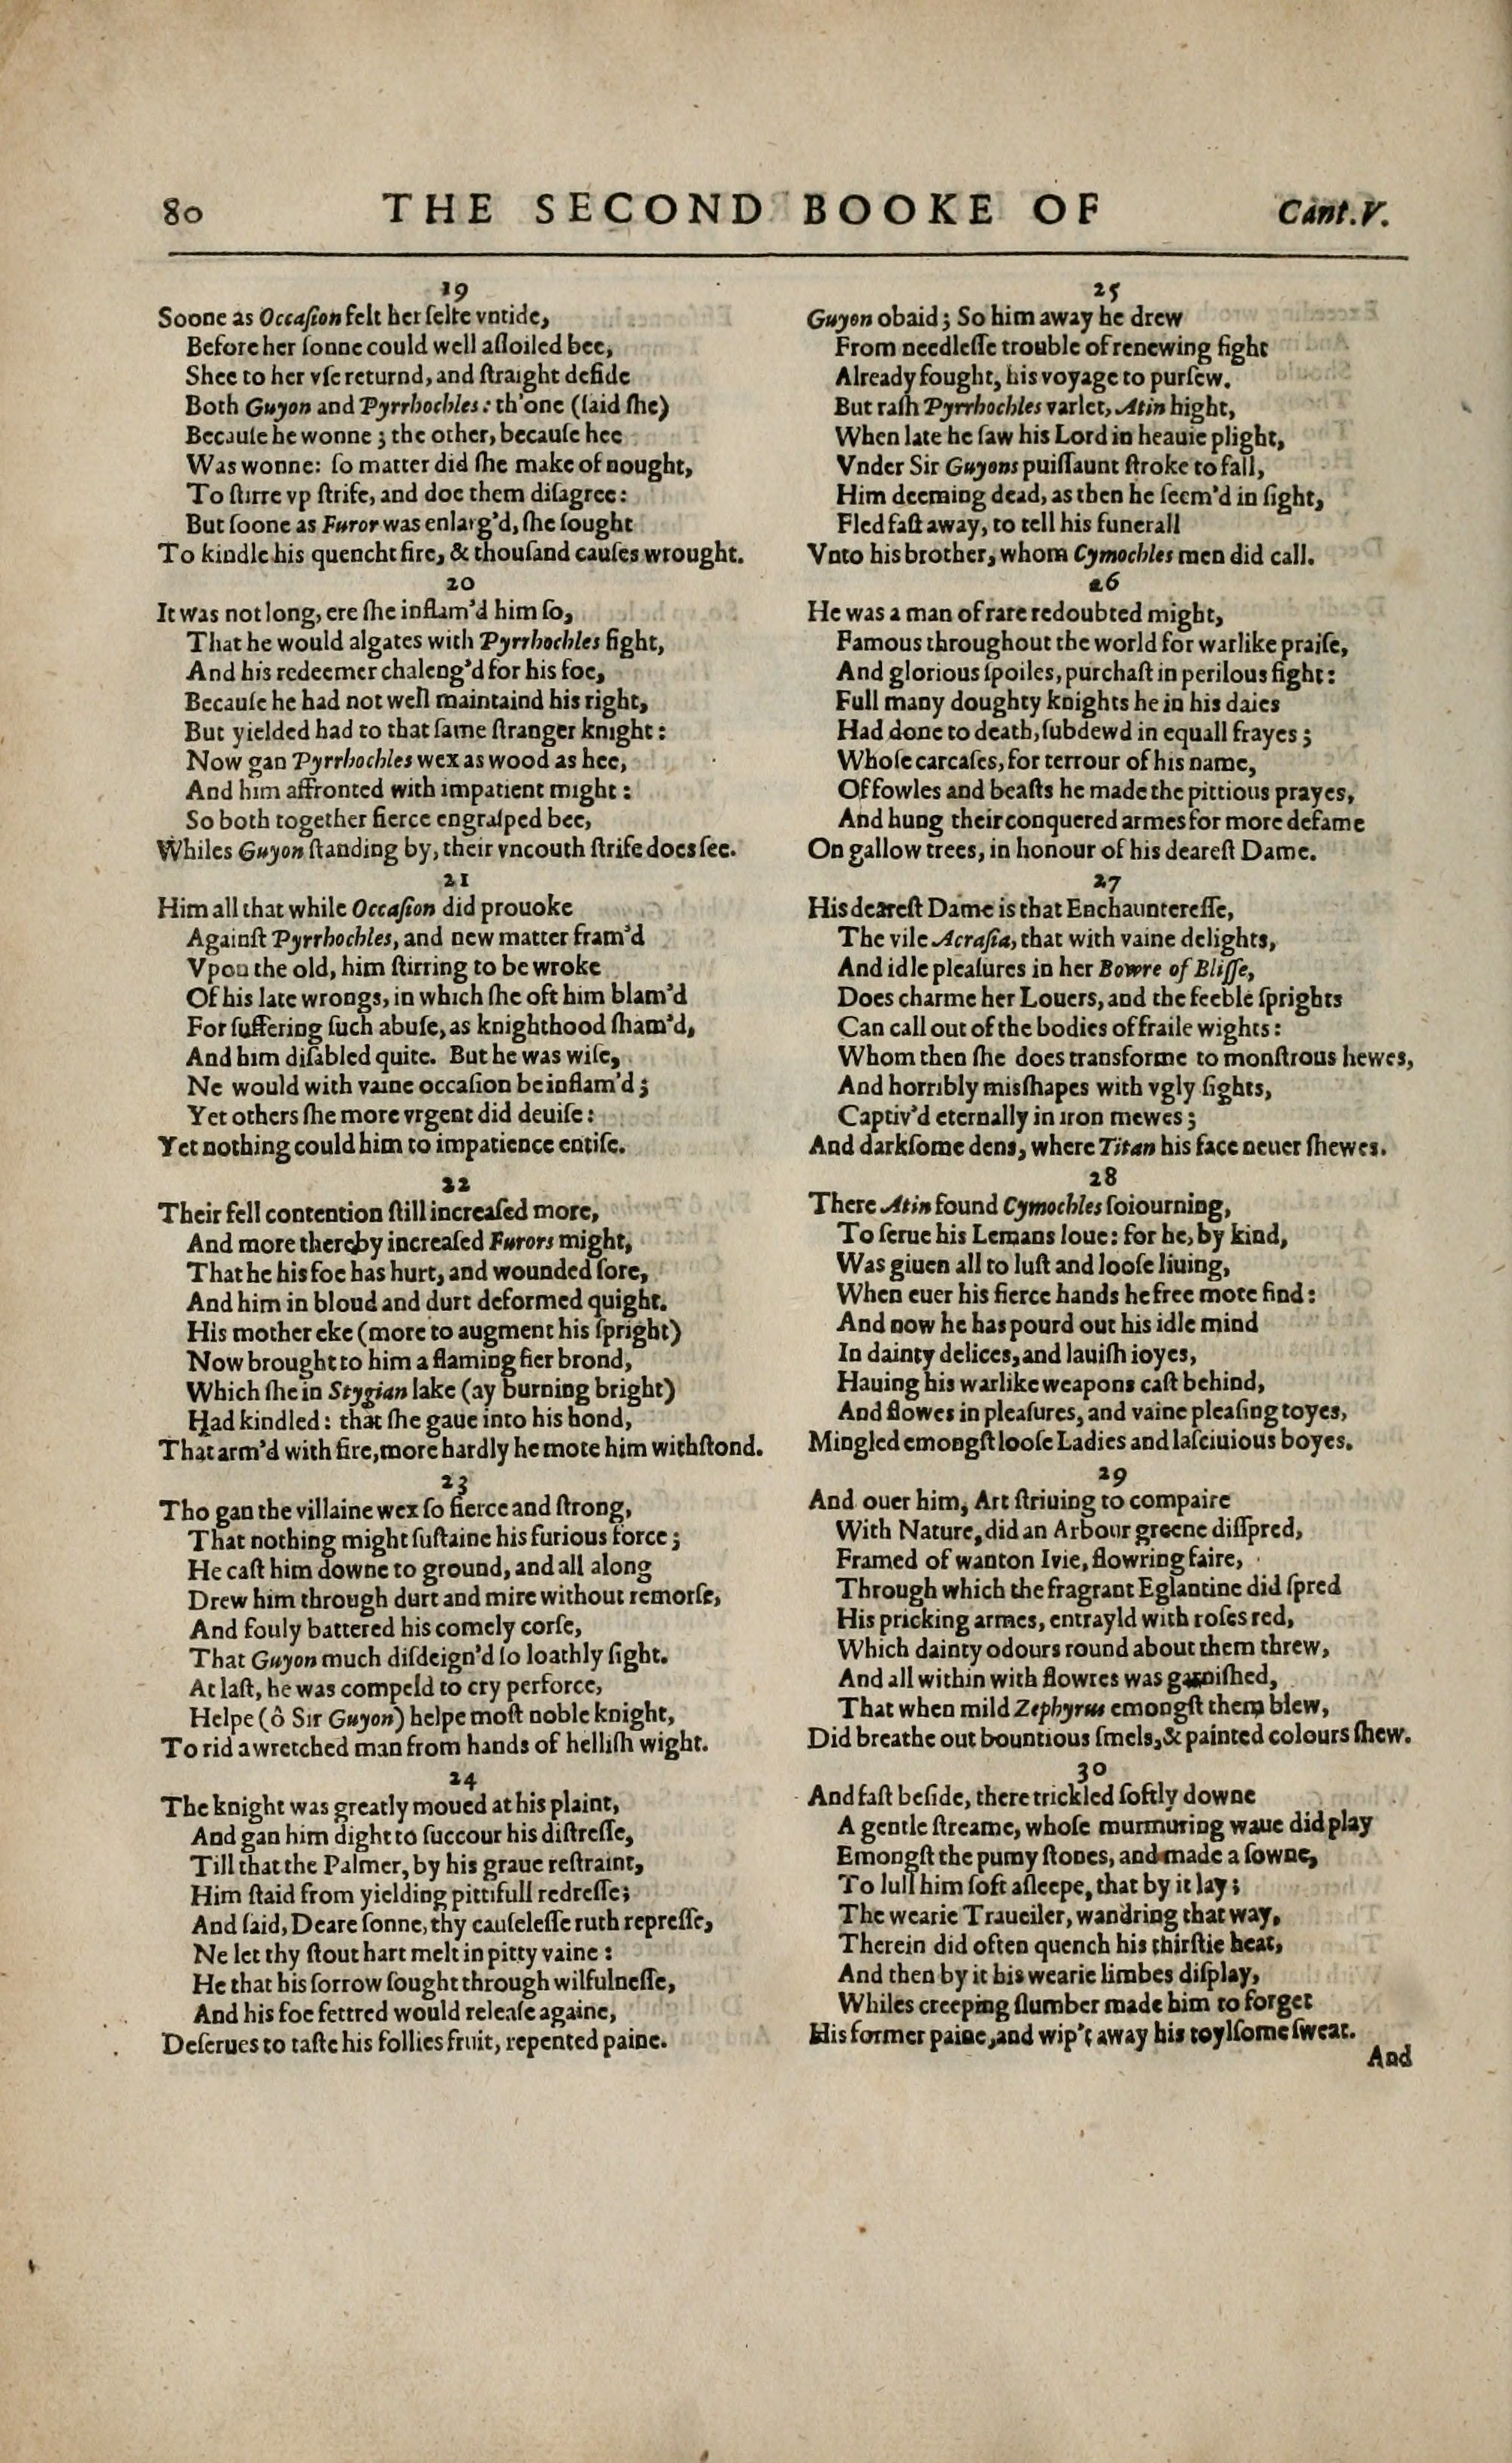 80 THE SECOND BOOKE OF Cant.V.
19
Soone as Occaſion felt her ſelfe vntide,
Before her ſonne could well aſſoiled bee,
Shee to her vſe returnd, and ſtraight defide
Both Guyon and Pyrrhochles: th'one (ſaid ſhe)
Becauſe he wonne; the other, becauſe hee
Was wonne: ſo matter did ſhe make of nought,
To ſtirre vp ſtrife, and doe them diſagree:
But ſoone as Furor was enlarg'd, ſhe ſought
To kindle his quencht fire, & thouſand cauſes wrought.
20
It was not long, ere ſhe inflam'd him ſo,
That he would algates with Pyrrhochles fight,
And his redeemer chaleng'd for his foe,
Becauſe he had not well maintaind his right,
But yielded had to that ſame ſtranger knight:
Now gan Pyrrhochles wex as wood as hee,
And him affronted with impatient might:
So both together fierce engraſped bee,
Whiles Guyon ſtanding by, their vncouth ſtrife does ſee.
21
Him all that while Occaſion did prouoke
Againſt Pyrrhochles, and new matter fram'd
Vpon the old, him ſtirring to be wroke
Of his late wrongs, in which ſhe oft him blam'd
For ſuffering ſuch abuſe, as knighthood ſham'd,
And him diſabled quite. But he was wiſe,
Ne would with vaine occaſion be inflam'd;
Yet others ſhe more vrgent did deuiſe:
Yet nothing could him to impatience entiſe.
22
Their fell contention ſtill increaſed more,
And more thereby increaſed Furors might,
That he his foe has hurt, and wounded ſore,
And him in bloud and durt deformed quight.
His mother eke (more to augment his ſpright)
Now brought to him a flaming fier brond,
Which ſhe in Stygian lake (ay burning bright)
Had kindled: that ſhe gaue into his hond,
That arm'd with fire, more hardly he mote him withſtond.
23
Tho gan the villaine wex ſo fierce and ſtrong,
That nothing might ſuſtaine his furious force;
He caſt him downe to ground, and all along
Drew him through durt and mire without remorſe,
And fouly battered his comely corſe,
That Guyon much diſdeign'd ſo loathly ſight.
At laſt, he was compeld to cry perforce,
Helpe (ô Sir Guyon) helpe moſt noble knight,
To rid a wretched man from hands of helliſh wight.
24
The knight was greatly moued at his plaint,
And gan him dight to ſuccour his diſtreſſe,
Till that the Palmer, by his graue reſtraint,
Him ſtaid from yielding pittifull redreſſe;
And ſaid, Deare ſonne, thy cauſeleſſe ruth repreſſe,
Ne let thy ſtout hart melt in pitty vaine:
He that his ſorrow ſought through wilfulneſſe,
And his foe fettred would releaſe againe,
Deſerues to taſte his follies fruit, repented paine.
25
Guyon obaid; So him away he drew
From needleſſe trouble of renewing fight
Already fought, his voyage to purſew.
But raſh Pyrrhochles varlet, Atin hight,
When late he ſaw his Lord in heauie plight,
Vnder Sir Guyons puiſſaunt ſtroke to fall,
Him deeming dead, as then he ſeem'd in ſight,
Fled faſt away, to tell his funerall
Vnto his brother, whom Cymochles men did call.
26
He was a man of rare redoubted might,
Famous throughout the world for warlike praiſe,
And glorious ſpoiles, purchaſt in perilous fight:
Full many doughty knights he in his daies
Had done to death, ſubdewd in equall frayes;
Whoſe carcaſes, for terrour of his name,
Of fowles and beaſts he made the pittious prayes,
And hung their conquered armes for more defame
On gallow trees, in honour of his deareſt Dame.
27
His deareſt Dame is that Enchauntereſſe,
The vile Acraſia, that with vaine delights,
And idle pleaſures in her Bowre of Bliſſe,
Does charme her Louers, and the feeble ſprights
Can call out of the bodies of fraile wights:
Whom then ſhe does transforme to monſtrous hewes,
And horribly misſhapes with vgly ſights,
Captiv'd eternally in iron mewes;
And darkſome dens, where Titan his face neuer ſhewes.
28
There Atin found Cymochles ſoiourning,
To ſerue his Lemans loue: for he, by kind,
Was giuen all to luſt and looſe liuing,
When euer his fierce hands he free mote find:
And now he has pourd out his idle mind
In dainty delices, and lauiſh ioyes,
Hauing his warlike weapons caſt behind,
And flowes in pleaſures, and vaine pleaſing toyes,
Mingled emongſt looſe Ladies and laſciuious boyes.
29
And ouer him, Art ſtriuing to compaire
With Nature, did an Arbour greene diſſpred,
Framed of wanton Ivie, flowring faire,
Through which the fragrant Eglantine did ſpred
His pricking armes, entrayld with roſes red,
Which dainty odours round about them threw,
And all within with flowres was garniſhed,
That when mild Zephyrus emongſt them blew,
Did breathe out bountious ſmels, & painted colours ſhew.
30
And faſt beſide, there trickled ſoftly downe
A gentle ſtreame, whoſe murmuring waue did play
Emongſt the pumy ſtones, and made a ſowne,
To lull him ſoft aſleepe, that by it lay;
The wearie Traueiler, wandring that way,
Therein did often quench his thirſtie heat,
And then by it his wearie limbes diſplay,
Whiles creeping ſlumber made him to forget
His former paine, and wip't away his toylſome ſweat.
And